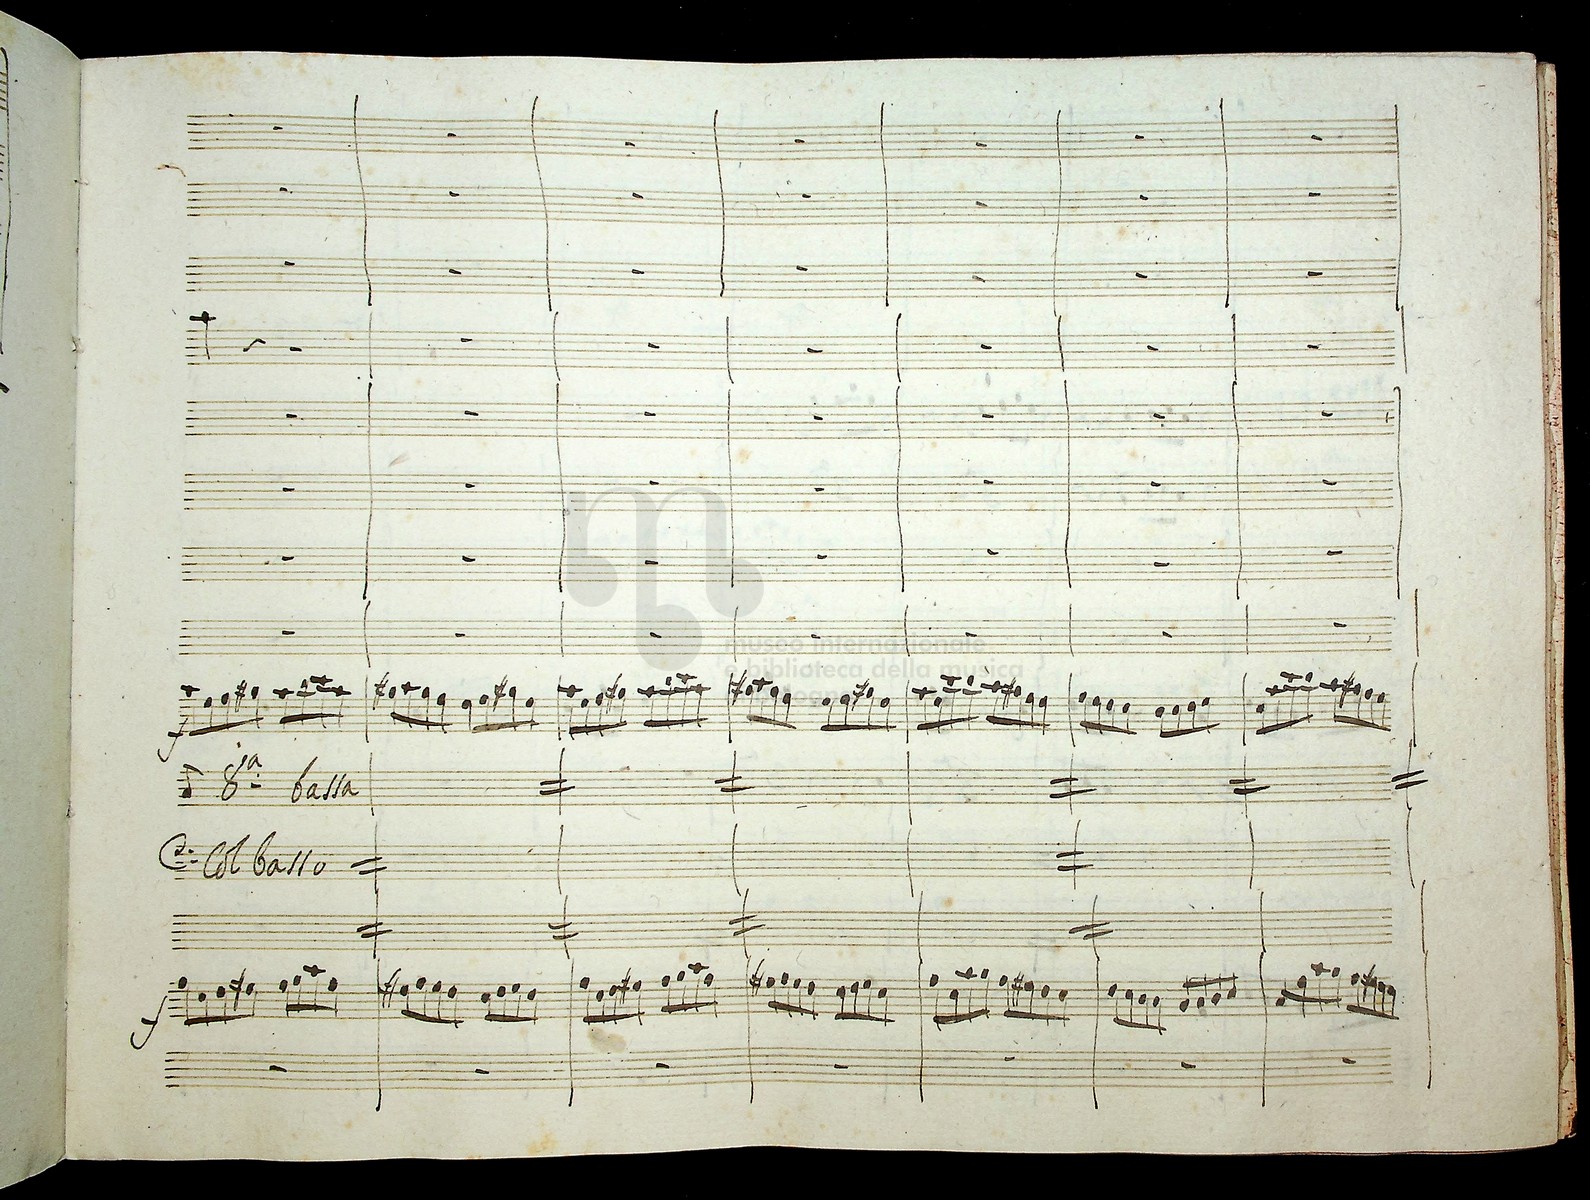 museo internazionale
e biblioteca della musica
f
8.ª bassa
Col basso
f